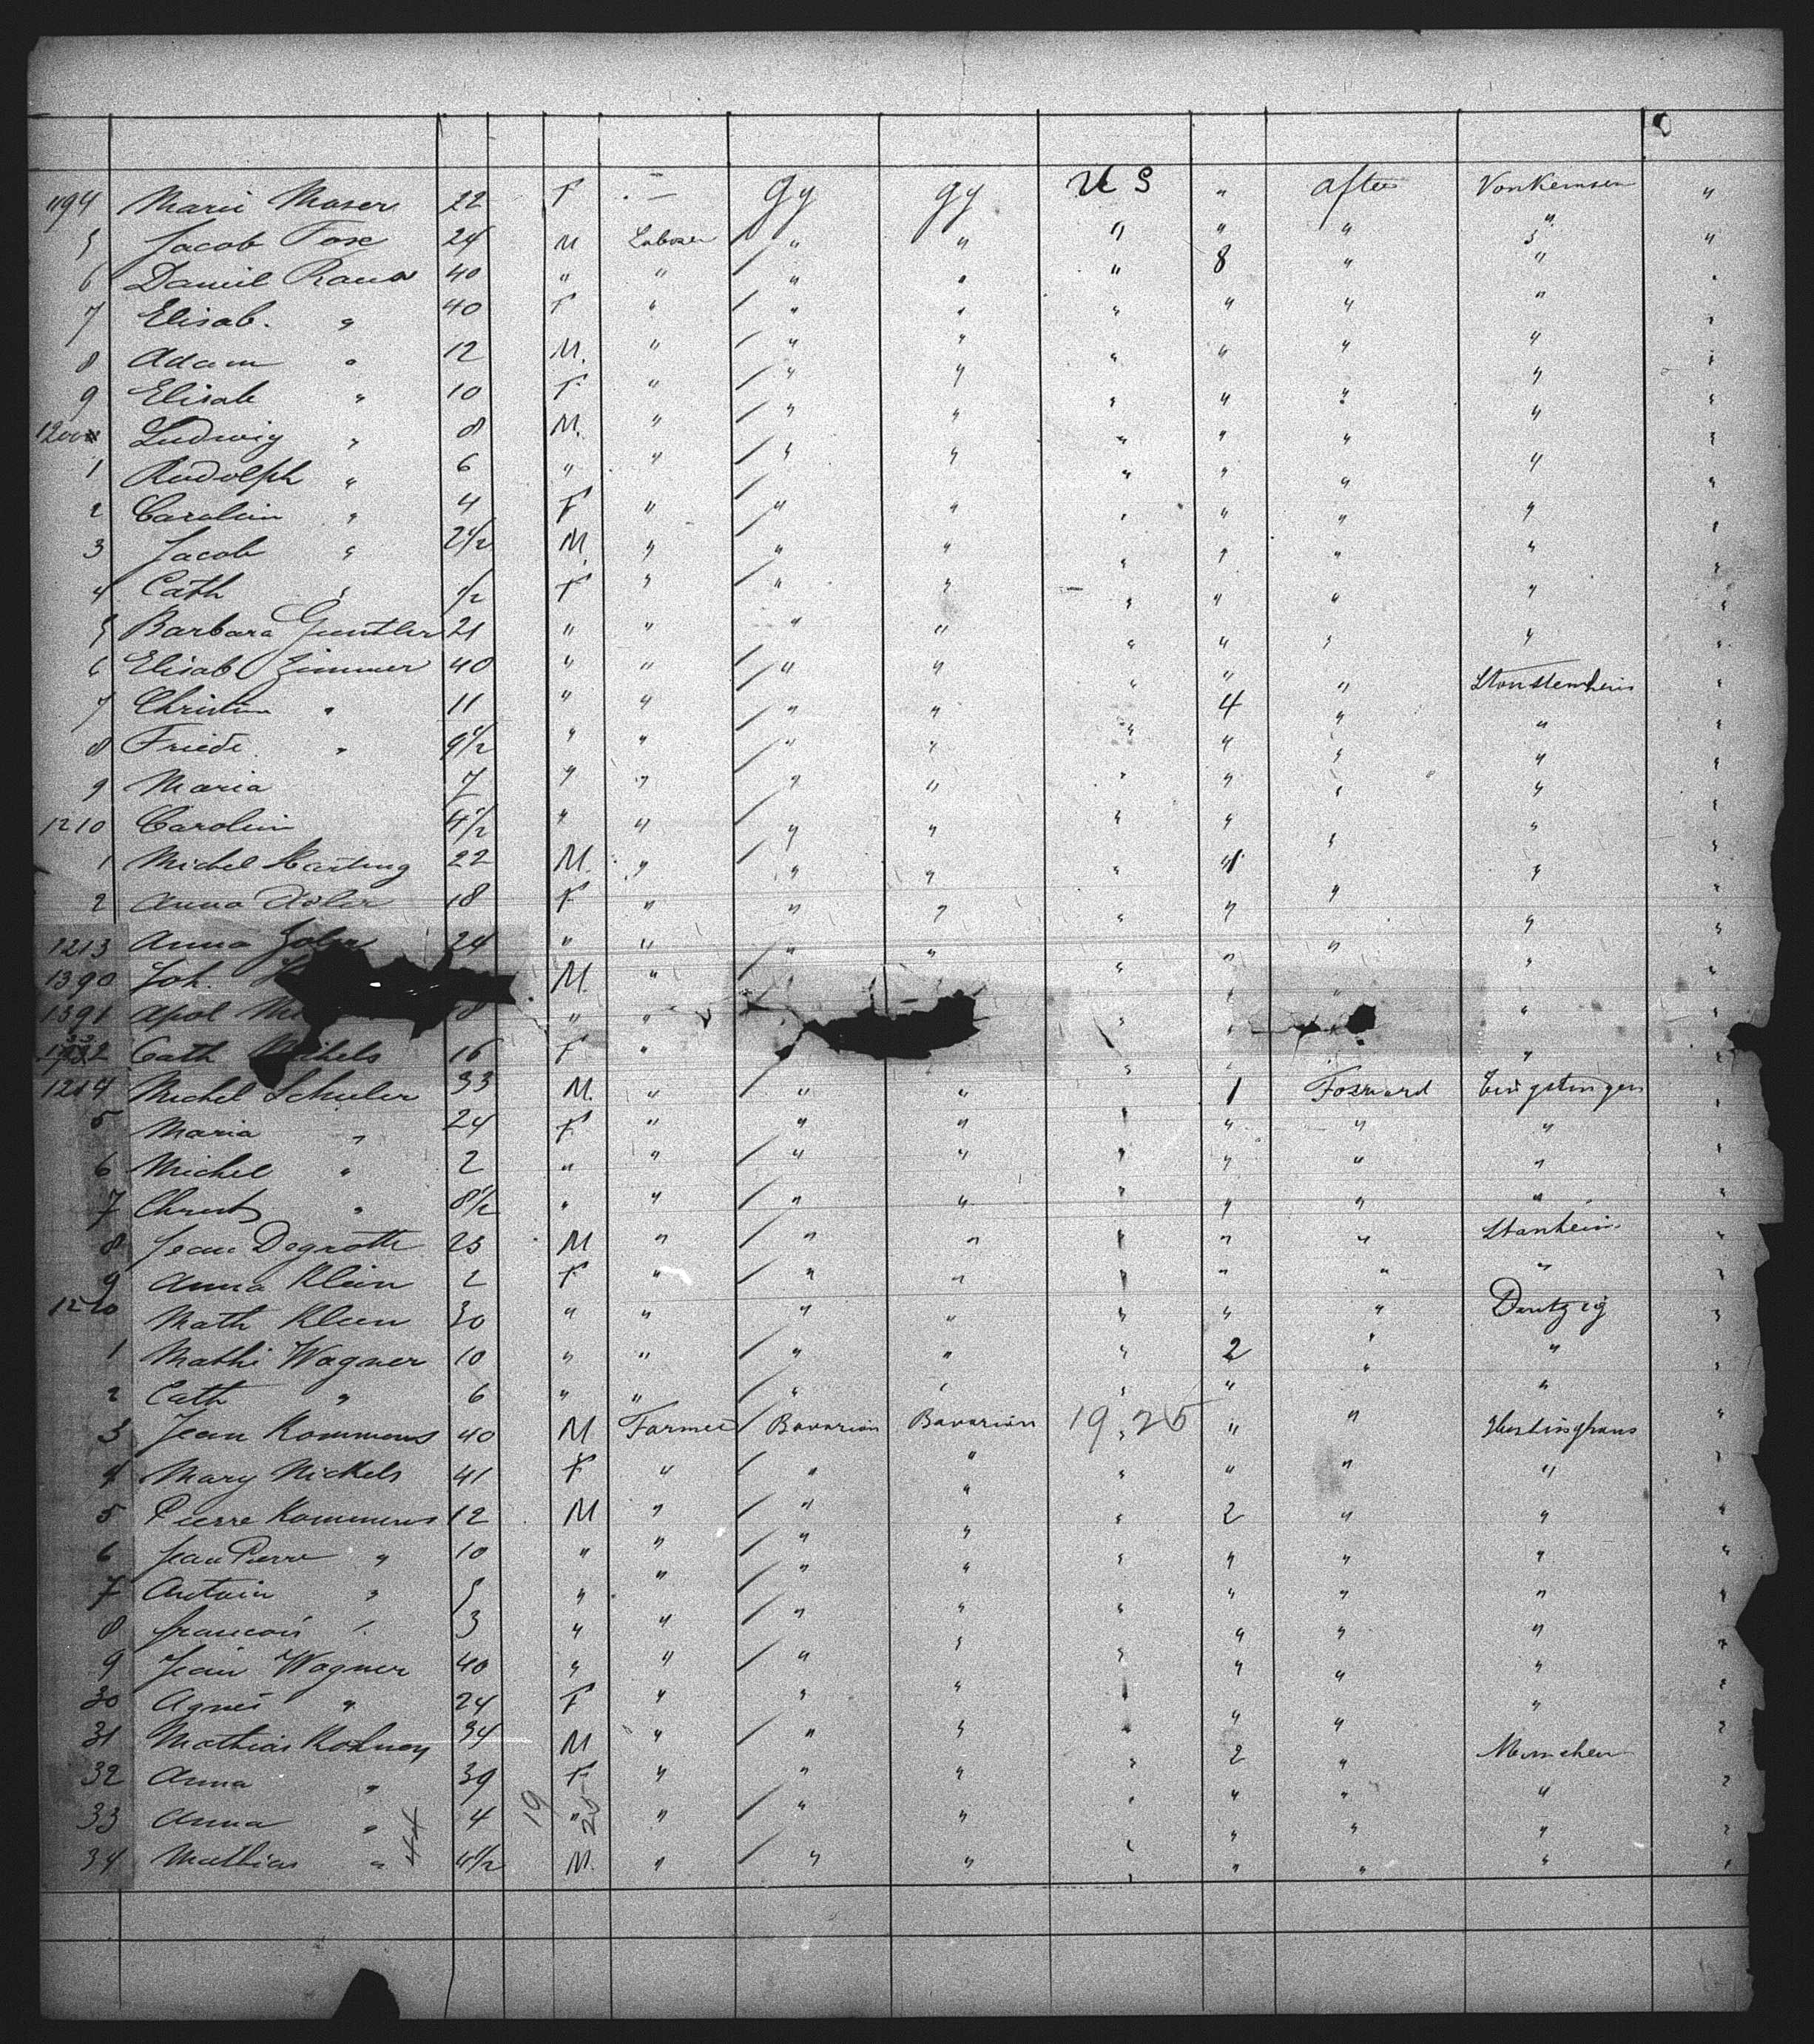 1194 Marie Moser 22 F — Gy Gy U S " after Vonkemsen "
5 Jacob Fox 24 M Laborer " " " " " " "
6 Daniel Raua 40 " " " " " 8 " " "
7 Elisab. " 40 F " " " " " " " "
8 Adam " 12 M. " " " " " " " "
9 Elisab " 10 F " " " " " " " "
1200 Ludwig " 8 M. " " " " " " " "
1 Rudolph " 6 " " " " " " " " "
2 Carolin " 4 F " " " " " " " "
3 Jacob " 2 1/2 M " " " " " " " "
4 Cath " 1/2 F " " " " " " " "
5 Barbara Guntler 21 " " " " " " " " "
6 Elisab Zimmer 40 " " " " " " " "
7 Christina " 11 " " " " " 4 " " "
8 Friede. " 9 1/2 " " " " " " " " "
9 Maria 7 " " " " " " " " "
1210 Carolin 4 1/2 " " " " " " " " "
1 Michel Hartung 22 M. " " " " " " "
2 Anna Adler 18 F " " " " " " " "
1213 Anna 24 " " " " " " " " "
1390 Joh. M. " " " " " "
1391 Apol " " " " "
Cath 16 F " " " " "
1214 Michel Schuler 33 M. " " " 1 Forward "
5 Maria " 24 F " " " " " " " "
6 Michel " 2 " " " " " " " " "
7 Christ " 8 1/2 " " " " " " " " "
8 Jean Degrott 25 M " " " " " " Stanheim "
9 Anna Klein 2 F " " " " " " " "
1220 Math Kleen 30 " " " " " " " Dantzig "
1 Mathi Wagner 10 " " " " " 2 " " "
2 Cath " 6 " " " " " " " " "
3 Jean Kommens 40 M Farmer Bavarian Bavarian 19 25 " " "
4 Mary Nickels 41 F " " " " " " " "
5 Pierre Kommens 12 M " " " " 2 " " "
6 Jean Pierre " 10 " " " " " " " " "
7 Antoin " 5 " " " " " " " " "
8 francois " 3 " " " " " " " " "
9 Jean Wagner 40 " " " " " " " " "
30 Agnes " 24 F " " " " " " " "
31 Mathias 34 M " " " " 2 " Munchen "
32 Anna " 39 F " " " " " " " "
33 Anna " 44 4 19 " 25 " " " " " " " "
34 Mathias " 4 1/2 M. " " " " " " " "